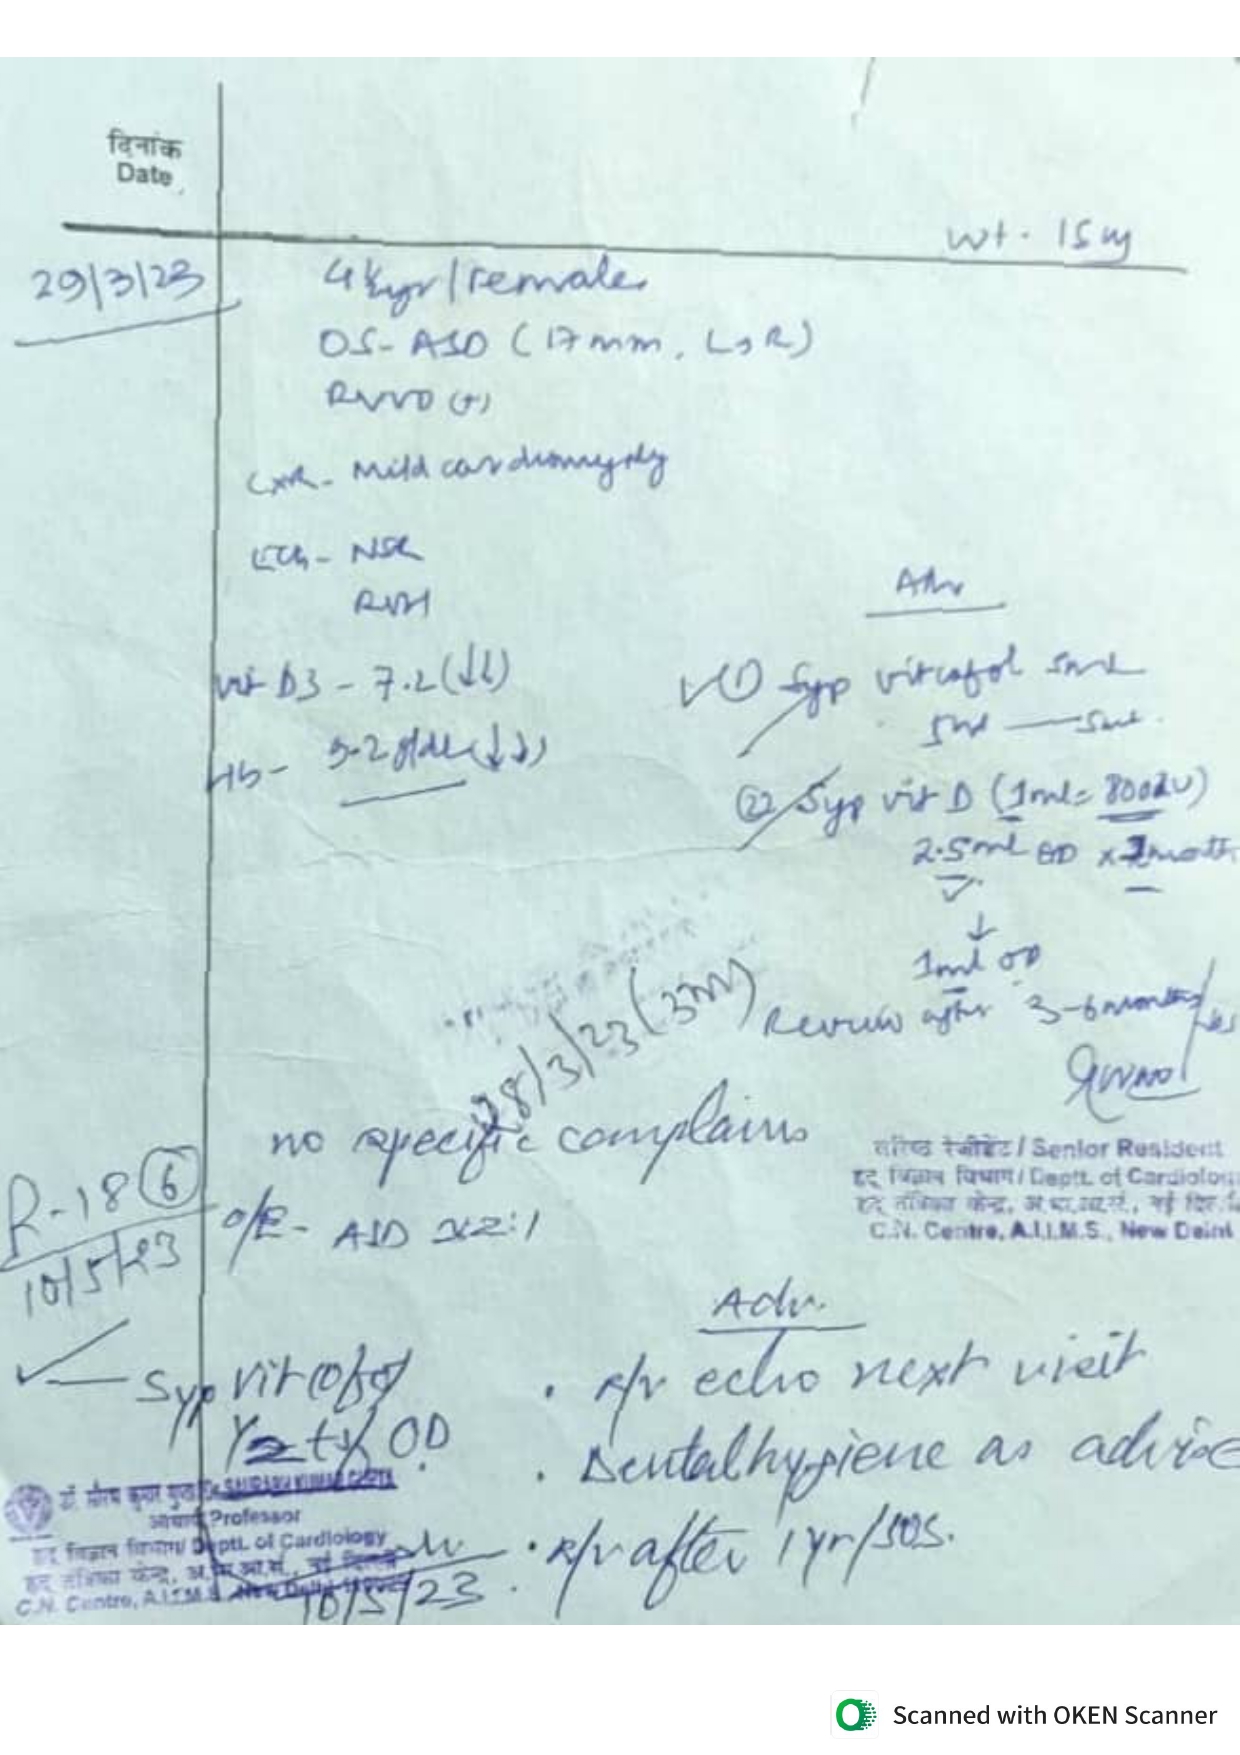 दिनांक
Date
Wt. 15
29/3/23
4½yr/Female
OS-ASD (17mm, L→R)
RVVO (+)
CXR- Mild cardiomegaly
ECG- NSR
RVH
Adv
Vit D3 - 7.2 (↓↓)
① Syp vitcofol 5ml
5ml — 5ml
Hb - 9.2 g/dl (↓↓)
② Syp vit D (1ml = 800IU)
2.5ml OD x month
↓
1ml OD
Review after 3-6 months
28/3/23 (3m)
no specific complains
वरिष्ठ रेजीडेंट / Senior Resident
हृद् विज्ञान विभाग / Deptt. of Cardiology
हृद् तंत्रिका केन्द्र, अ.भा.आ.सं., नई दिल्ली
C.N. Centre, A.I.I.M.S., New Delhi
R-18 ⑥
10/5/23
O/E- ASD x 2:1
Adv.
Syp Vitcofol
OD
• r/v echo next visit
• Dental hygiene as advise
• r/v after 1yr/SOS.
डॉ. सौरभ कुमार गुप्ता/Dr. SAURABH KUMAR GUPTA
आचार्य/Professor
हृद् विज्ञान विभाग/Deptt. of Cardiology
हृद् तंत्रिका केन्द्र, अ.भा.आ.सं., नई दिल्ली
C.N. Centre, A.I.I.M.S., New Delhi
10/5/23
Scanned with OKEN Scanner